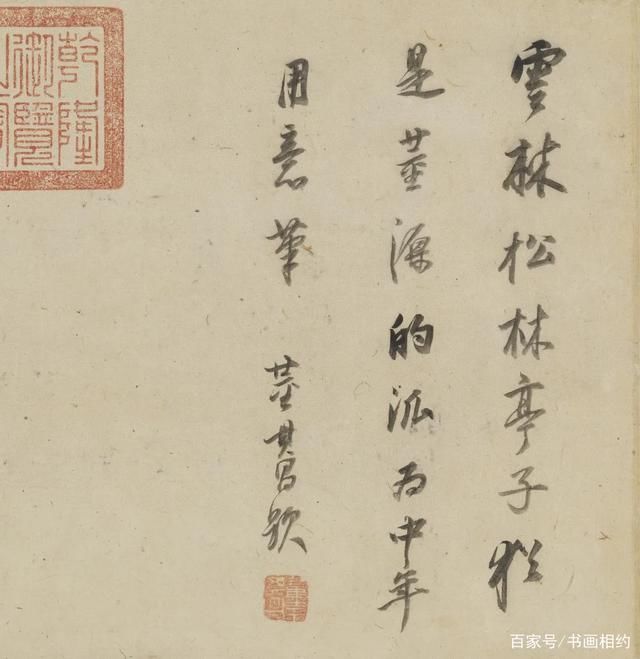 雲林松林亭子猶
是董源的派為中年
用意筆 董其昌題
乾隆
御覽
之寶
百家号/书画相约